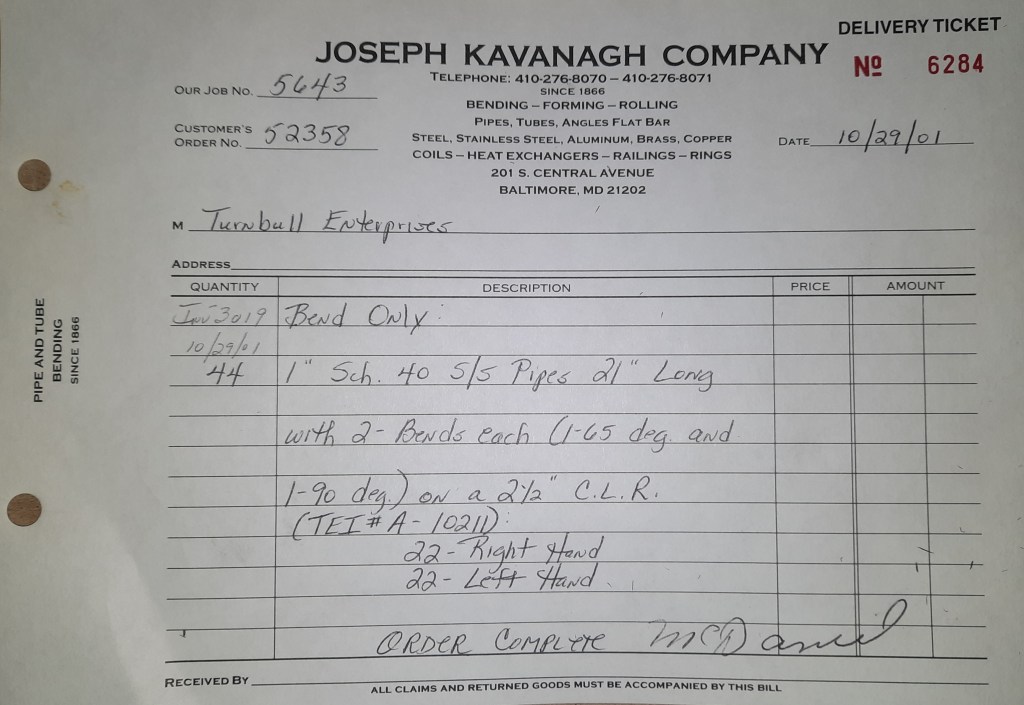 DELIVERY TICKET
JOSEPH KAVANAGH COMPANY
Nº 6284
TELEPHONE: 410-276-8070 – 410-276-8071
SINCE 1866
OUR JOB NO. 5643
BENDING – FORMING – ROLLING
PIPES, TUBES, ANGLES FLAT BAR
CUSTOMER'S ORDER NO. 52358
STEEL, STAINLESS STEEL, ALUMINUM, BRASS, COPPER
DATE 10/29/01
COILS – HEAT EXCHANGERS – RAILINGS – RINGS
201 S. CENTRAL AVENUE
BALTIMORE, MD 21202
M Turnbull Enterprises
ADDRESS
QUANTITY DESCRIPTION PRICE AMOUNT
Inv 3019 Bend Only:
10/29/01
44 1" Sch. 40 S/S Pipes 21" Long
with 2- Bends each (1-65 deg. and
1-90 deg.) on a 2 1/2" C.L.R.
(TEI # A-10211):
22- Right Hand
22- Left Hand.
ORDER COMPLETE McDaniel
RECEIVED BY
ALL CLAIMS AND RETURNED GOODS MUST BE ACCOMPANIED BY THIS BILL
PIPE AND TUBE
BENDING
SINCE 1866